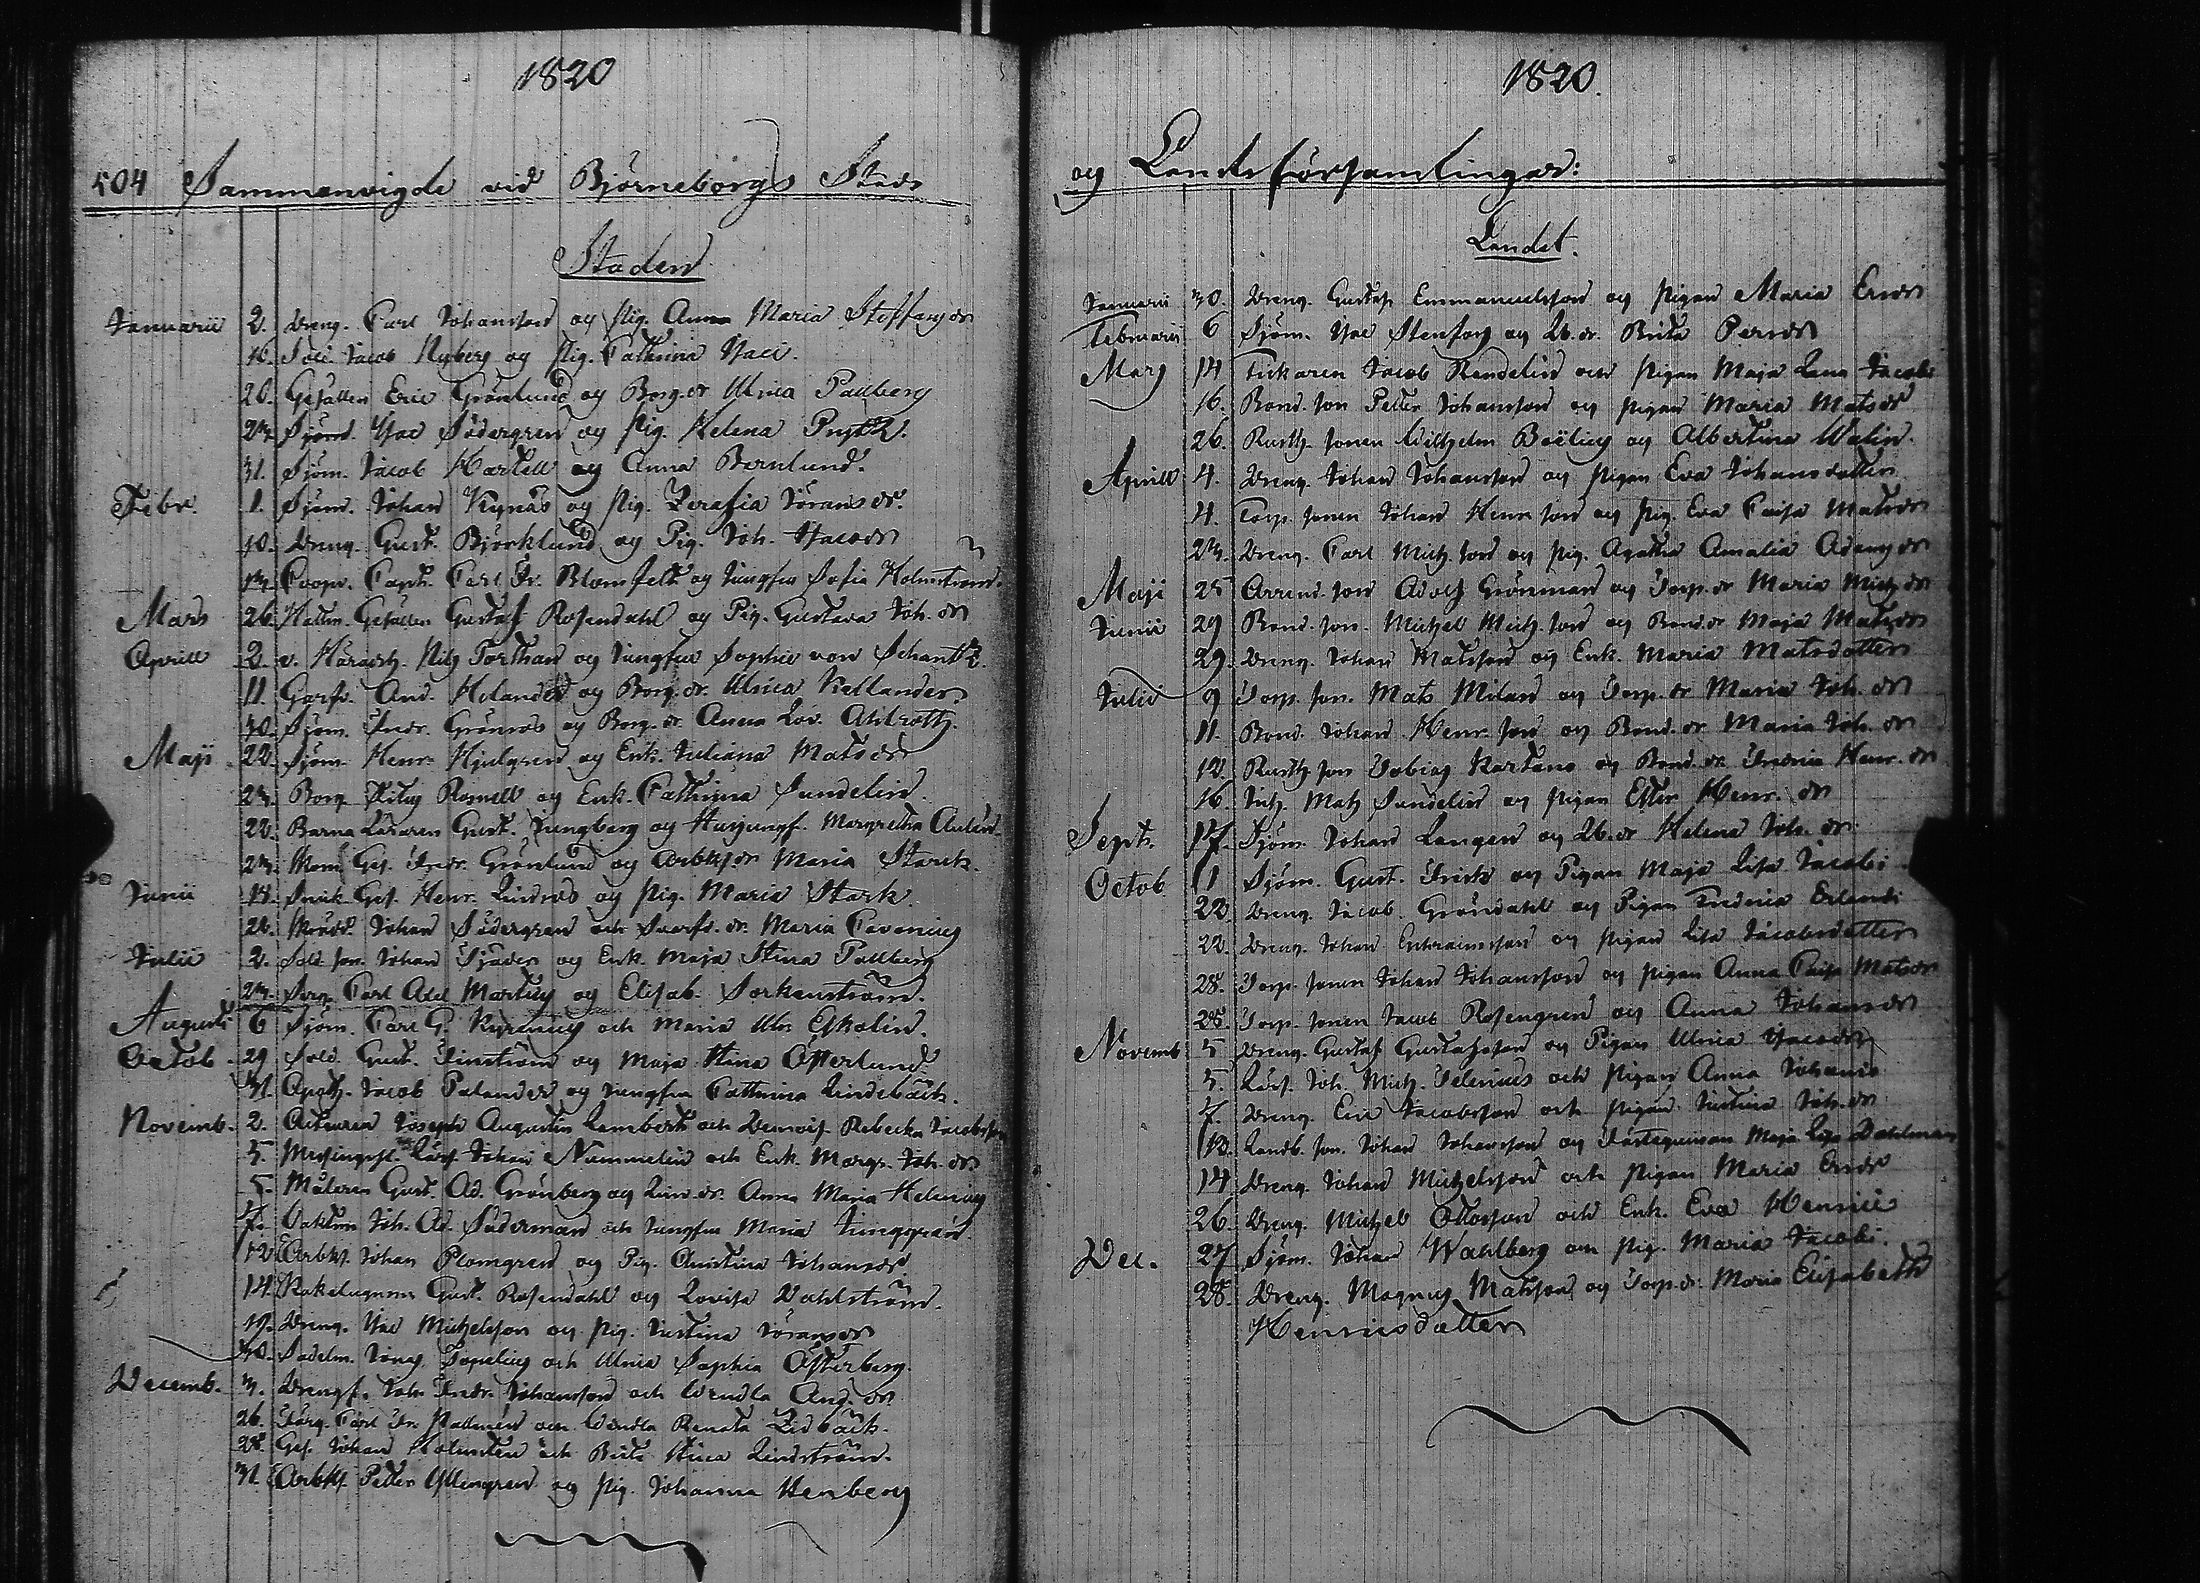 1820
504 Sammanvigde vid Björneborgs Stads
Staden
Januarii 2. Dreng. Carl Johansson og Pig. Anna Maria Steffansdr
16. Sold. Jacob Nyberg og Pig. Cathrina Isaci.
20. Gesällen Eric Grönlund og Borg.dr Ulrica Padberg
23. Sjöm. Isac Södergren og Pig. Helena
31. Sjöm. Jacob Martell og Anna Bernlund.
Febr. 1. Sjöm. Johan Kynäs og Pig. Serafia Göransdr.
10. Dreng. Gust. Björklund og Pig. Joh. Isacsdr
13. Coopv. Capt. Carl Fr. Blomfelt og Jungfru Sofia Holmström.
Mars 26. Hattm. Gesällen Gustaf Rosendahl og Pig. Gustava Joh.dr
Aprill 2. v. Häradsh. Nils Forthan og Jungfru Sophie von Schantz.
11. Garfv. And. Helander og Borg.dr. Ulrica Kellander
30. Sjöm. Fredr. Grönroos og Borg.dr. Anna Lov.
Maji 22. Sjöm. Henr. Hjulgren og Enk. Juliana Matsdr
23. Borg. Rosnell og Enk. Cathrina Sundelin.
22. Barna Läraren Gust. Ljungberg og Husjungf. Margretha
23. Gef. Fredr. Grönlund og Arbksdr Maria Starck.
Junii 18. Snick. Ges. Henr. Lindroos og Pig. Maria Stark.
26. Johan Södergren och Maria Favenius
Julii 2. Sold. son Johan Sjöder og Enk. Maja Stina Padberg
23. Carl Axel Martin og Elisab. Sorkenström.
Augusti 6 Sjöm. Carl G. Kyrenius och Maria Ulr. Ekelin.
Octob. 29 Sold. Gust. Finström og Maja Stina Österlund
31. Apoth. Jacob Palander og Jungfru Cathrina Lindebäck.
Novemb. 2. Acteuren Joseph Augustin Lambert och Demois. Rebecka Jacobsson
5. Johan Nummelin och Enk. Margr. Joh.dr
5. Målaren Gust. Ad. Grönberg og Anna Maria Helenius
7. Joh. Ad. Söderman och Jungfru Maria Ljunggren.
12. Arbk. Johan Blomgren og Pig. Christina Johansdr
14. Kakelugnsm. Gust. Rosendahl og Lovisa Dahlström.
19. Dreng. Isac Michelsson og Pig. Justina Göransdr
30. Sadelm. Jonas Topelius och Ulrica Sophia Österberg.
Decemb. 3. Drengs. Joh. Fredr. Johansson och Wendla And.dr
26. Färg. Carl Fr. Hallmén och Wendla Renata Zidbäck.
28. Ges. Johan Holmsten och Brita Stina Lindström.
31. Arbk. Petter Yllengren og Pig. Johanna Henberg
1820.
og Lands församlingar:
Landet.
Januarii 30. Dreng. Gustaf Emmanuelsson og Pigan Maria Ersdr
Februarii 6 Sjöm. Isac Stenfors og Lb.dr. Brita Persdr
Mars 14 Fiskaren Jacob Randelin och Pigan Maja Lena Jacobi
16. Bond. Son Petter Johansson og Pigan Maria Matsdr
26. Rusth. sonen Wilhelm Boëlius og Albertina Walin.
Aprill 4. Dreng. Johan Johansson og Pigan Eva Johansdotter
4. Torp. sonen Johan Henr.son og Pig. Eva Caisa Matsdr
23. Dreng. Carl Mich.son og Pig. Agatha Amalia Adamsdr
Maji 28 Arrend. son Adolf Grönman og Torp.dr Maria Mich.dr
Junii 29 Bond. son. Michel Mich.son og Bond.dr Maja Matsdr
29. Dreng. Johan Matsson og Enk. Maria Matsdotter
Julii 9 Torp. son. Mats Milan og Torp.dr Maria Joh.dr
11. Bond. Johan Henr.son og Bond.dr Maria Joh.dr
12. Rusth. son Tobias Kartano og Bond.dr Fredrica Henr.dr
16. Inh. Mats Sundelin og Pigan Ester Henr.dr
Sept. 17. Sjöm. Johan Langen og Lb.dr Helena Joh.dr
Octob 1 Sjöm. Gust. Frisk og Pigan Maja Lisa Jacobi
22. Dreng. Jacob Gröndahl og Pigan Fredrica Erlandi
22. Dreng. Johan Ephraimsson og Pigan Lisa Jacobsdotter
28. Torp. sonen Johan Johansson og Pigan Anna Caisa Matsdr
28. Torp. sonen Jacob Rosengren og Anna Johansdr
Novemb 5 Dreng. Gustaf Gustafsson og Pigan Ulrica Isacsdr
5. Joh. Mich. Selenius och Pigan Anna Johansdr
7. Dreng. Eric Jacobsson och Pigan Justina Joh.dr
12. Landb. son. Johan Johansson og Fästeqvinnan Maja Lisa Dahlman
14 Dreng. Johan Michelsson och Pigan Maria Ersdr
26. Dreng. Michel Ottosson och Enk. Eva Henrici
Dec. 27 Sjöm. Johan Wahlberg och Pig. Maria Jacobi.
28. Dreng. Magnus Matsson og Torp.dr Maria Elisabeth
Henricsdotter